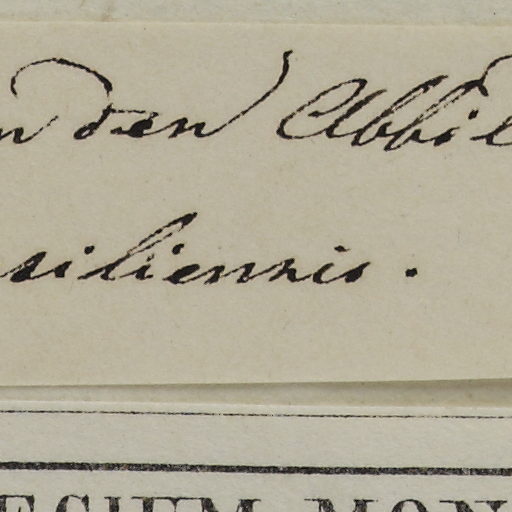 n den Abbil
siliensis.
EGIUM MON